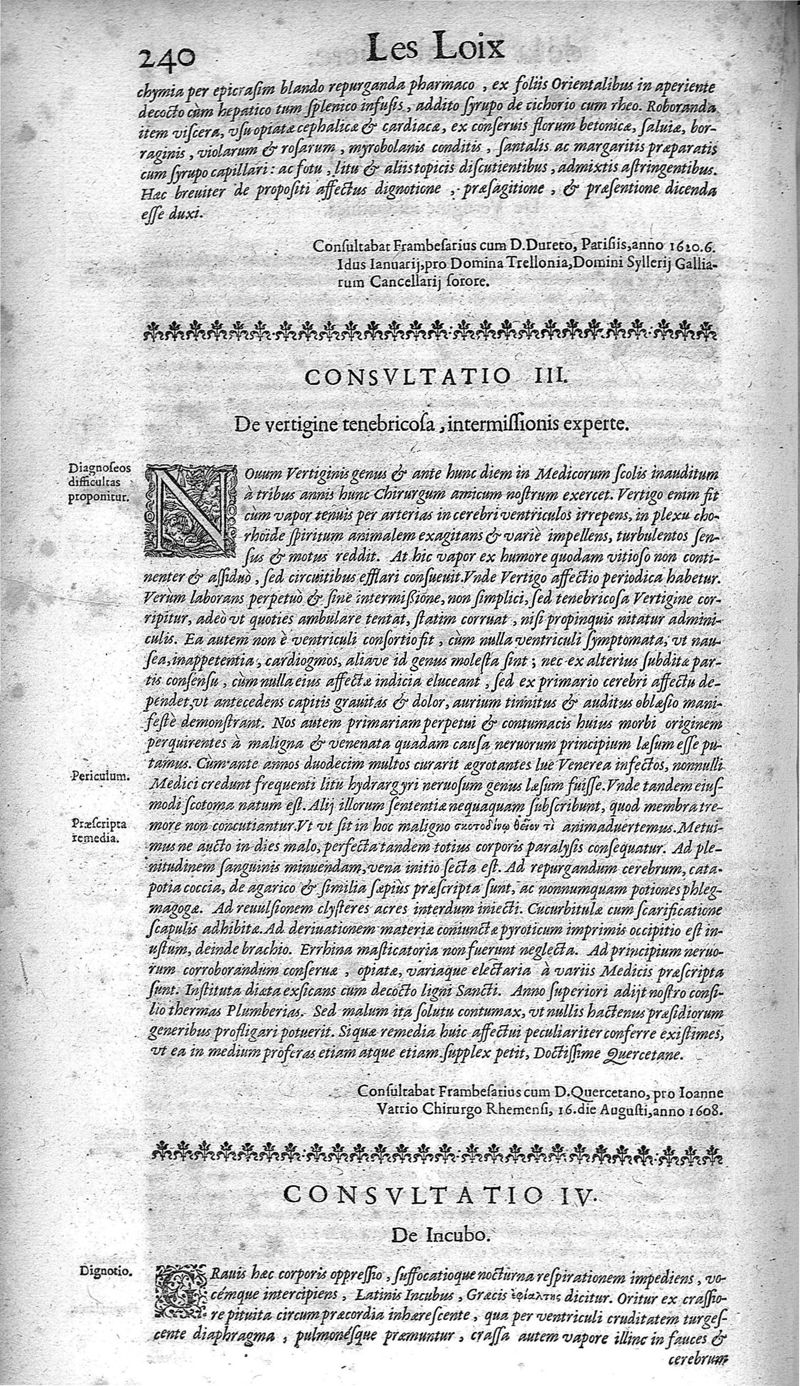 240
Les Loix
chymia per epicrasim blando repurganda pharmaco, ex foliis Orientalibus in aperiente
decocto cùm hepatico tum splenico infusis, addito syrupo de cichorio cum rheo. Roboranda
item viscera, vsu opiatæ cephalicæ & cardiacæ, ex conseruis florum betonicæ, saluiæ, bor-
raginis, violarum & rosarum, myrobolanis conditis, santalis ac margaritis præparatis
cum syrupo capillari: ac fotu, litu & aliis topicis discutientibus, admixtis astringentibus.
Hæc breuiter de propositi affectus dignotione, præsagitione, & præsentione dicenda
esse duxi.
Consultabat Frambesarius cum D. Dureto, Parisiis, anno 1610. 6.
Idus Ianuarij, pro Domina Trellonia, Domini Syllerij Gallia-
rum Cancellarij sorore.
CONSVLTATIO III.
De vertigine tenebricosa, intermissionis experte.
Diagnoseos
difficultas
proponitur.
NOuum Vertiginis genus & ante hunc diem in Medicorum scolis inauditum
à tribus annis hunc Chirurgum amicum nostrum exercet. Vertigo enim fit
cùm vapor tenuis per arterias in cerebri ventriculos irrepens, in plexu cho-
rhoïde spiritum animalem exagitans & variè impellens, turbulentos sen-
sus & motus reddit. At hic vapor ex humore quodam vitioso non conti-
nenter & assiduò, sed circuitibus efflari consueuit. Vnde Vertigo affectio periodica habetur.
Verùm laborans perpetuò & sine intermißione, non simplici, sed tenebricosa Vertigine cor-
ripitur, adeò vt quoties ambulare tentat, statim corruat, nisi propinquis nitatur admini-
culis. Ea autem non è ventriculi consortio fit, cùm nulla ventriculi symptomata, vt nau-
sea, inappetentia, cardiogmos, aliave id genus molesta sint; nec ex alterius subditæ par-
tis consensu, cùm nulla eius affectæ indicia eluceant, sed ex primario cerebri affectu de-
pendet, vt antecedens capitis grauitas & dolor, aurium tinnitus & auditus oblæsio mani-
festè demonstrant. Nos autem primariam perpetui & contumacis huius morbi originem
perquirentes à maligna & venenata quadam causa neruorum principium læsum esse pu-
tamus. Cum ante annos duodecim multos curarit ægrotantes lue Venerea infectos, nonnulli
Periculum.
Medici credunt frequenti litu hydrargyri neruosum genus læsum fuisse. Vnde tandem eius-
modi scotoma natum est. Alij illorum sententiæ nequaquam subscribunt, quod membra tre-
Præscripta
remedia.
more non concutiantur. Vt vt sit in hoc maligno σκοτοδίνῳ θεῖον τὶ animaduertemus. Metui-
mus ne aucto in dies malo, perfecta tandem totius corporis paralysis consequatur. Ad ple-
nitudinem sanguinis minuendam, vena initio secta est. Ad repurgandum cerebrum, cata-
potia coccia, de agarico & similia sæpius præscripta sunt, ac nonnumquam potiones phleg-
magogæ. Ad reuulsionem clysteres acres interdum iniecti. Cucurbitulæ cum scarificatione
scapulis adhibitæ. Ad deriuationem materiæ coniunctæ pyroticum imprimis occipitio est in-
ustum, deinde brachio. Errhina masticatoria non fuerunt neglecta. Ad principium neruo-
rum corroborandum conseruæ, opiatæ, variaque electaria à variis Medicis præscripta
sunt. Instituta diæta exsicans cum decocto ligni Sancti. Anno superiori adijt nostro consi-
lio thermas Plumberias. Sed malum ita solutu contumax, vt nullis hactenus præsidiorum
generibus profligari potuerit. Si quæ remedia huic affectui peculiariter conferre existimes,
vt ea in medium proferas etiam atque etiam supplex petit, Doctissime Quercetane.
Consultabat Frambesarius cum D. Quercetano, pro Ioanne
Vatrio Chirurgo Rhemensi, 16. die Augusti, anno 1608.
CONSVLTATIO IV.
De Incubo.
Dignotio.
GRauis hæc corporis oppressio, suffocatioque nocturna respirationem impediens, vo-
cémque intercipiens, Latinis Incubus, Græcis ἐφιάλτης dicitur. Oritur ex crassio-
re pituita circum præcordia inhærescente, qua per ventriculi cruditatem turges-
cente diaphragma, pulmonésque præmuntur, crassa autem vapore illinc in fauces &
cerebrum